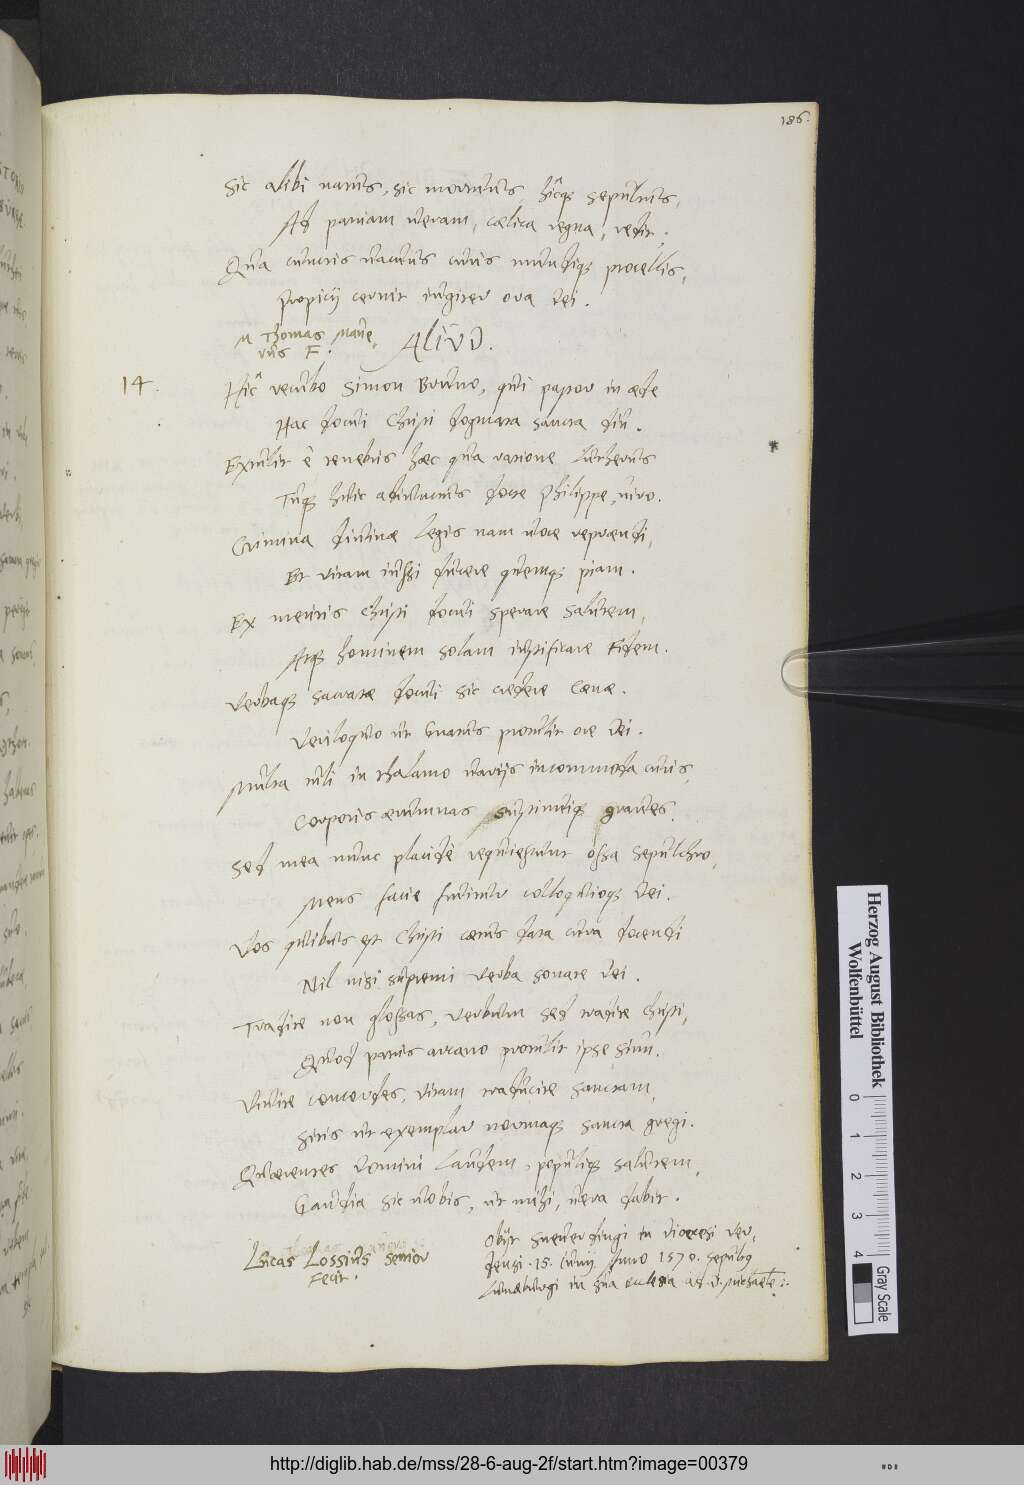 186.
Sic alibi natus, sic mortuus, hîcq; sepultus,
Ad patriam veram, cœlica regna, redit.
Qua cunctis vacuus curis mundiq; procellis,
Propicij cernit iugiter ora Dei.
M Thomas Mawe,
rus F.
ALIUD.
14.
Hîc recubo Simon Bruno, qui pastor in æde
Hac docui Christi dogmata sancta diu.
Extulit è tenebris hæc qua ratione Lutherus
Tuq; huic adiunctus docte Philippe, viro.
Crimina divinæ legis nam voce repraendi,
Et vitam iussi ducere quemq; piam.
Ex meritis Christi docui sperare salutem,
Atq; hominem solam iustificare Fidem.
Verbaq; sacratæ docui sic credere Cœnæ.
Veriloquo ut Gnatus protulit ore Dei.
Multa tuli in thalamo varijs incommoda curis,
Corporis ærumnas sustinuiq; graves.
Sed mea nunc placidè requiescunt ossa sepulchro,
Mens facie fruitur colloquioq; Dei.
Vos quibus est Christi cœtus data cura docendi
Nil nisi supremi verba sonate Dei.
Tradite non glossas, verbum sed tradite Christi,
Quod patris arcano protulit ipse sinu.
Vivite concordes, vitam traducite sanctam,
Sitis ut exemplar normaq; sancta gregi.
Quærentes Domini laudem, populiq; salutem,
Gaudia sic vobis, ut mihi, vera dabit.
Lucas Lossius senior
Fecit.
Obijt Sneverdingi in Diœcesi Ver,
densi. 15. Iunij Anno 1570. sepultus
Lunæburgi in sua ecclesia ad D. Michaele:.
Herzog August Bibliothek
Wolfenbüttel
0 1 2 3 4
Gray Scale
http://diglib.hab.de/mss/28-6-aug-2f/start.htm?image=00379